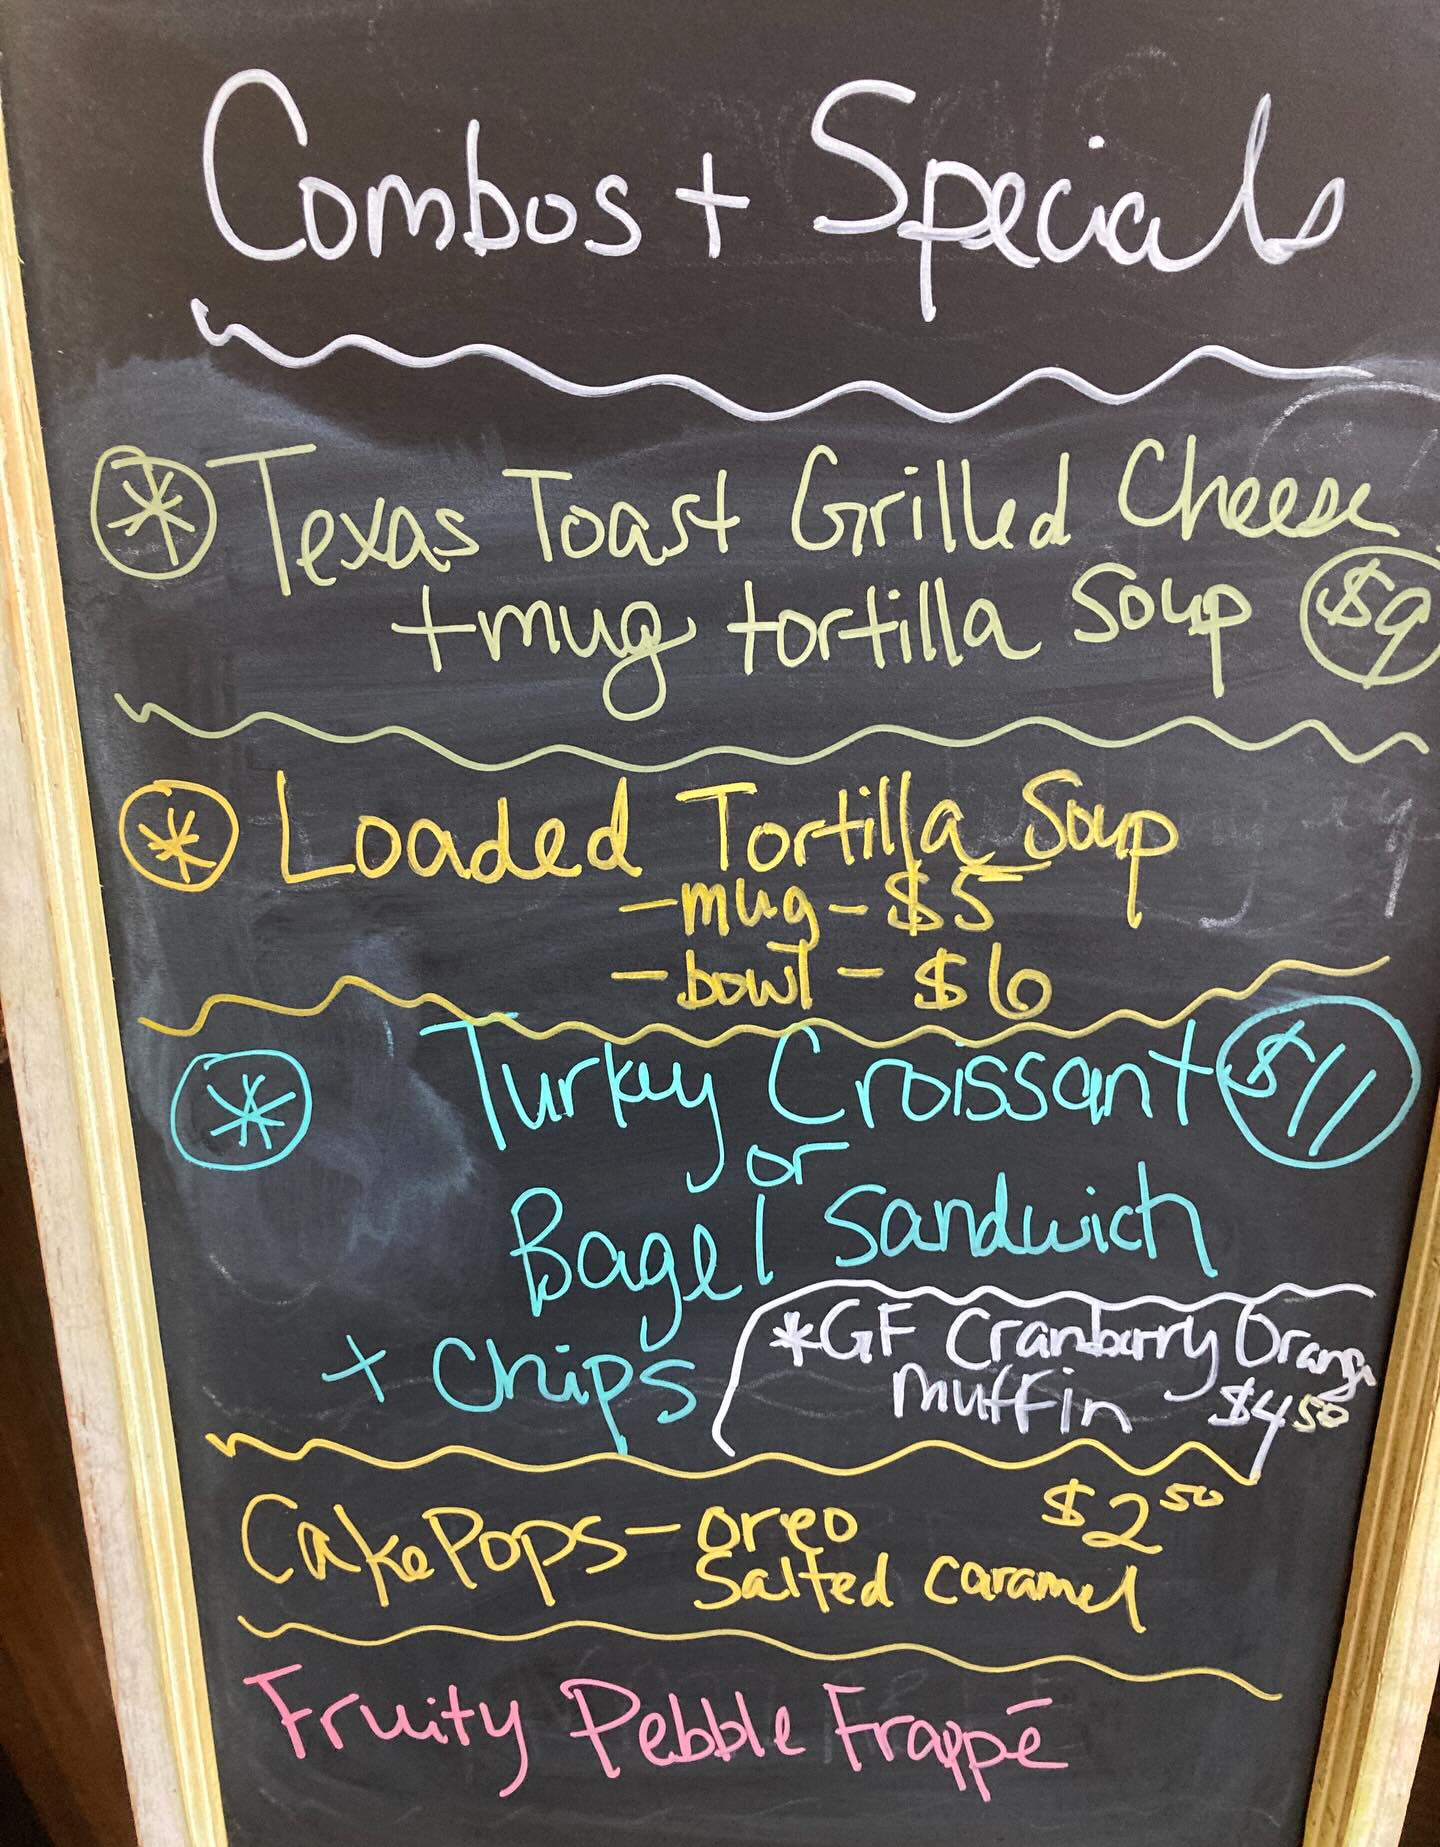 Combos + Specials
* Texas Toast Grilled Cheese
+ mug tortilla soup $9
* Loaded Tortilla Soup
- mug - $5
- bowl - $6
* Turkey Croissant $11
or
Bagel Sandwich
+ Chips
*GF Cranberry Orange
muffin $4 50
Cake Pops - oreo $2 50
Salted Caramel
Fruity Pebble Frappē